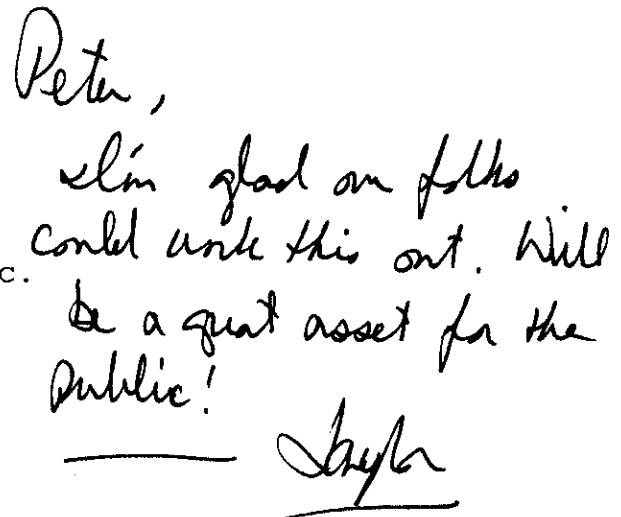 Peter,
I'm glad our folks
could work this out. Will
c.
be a great asset for the
public!
Taylor